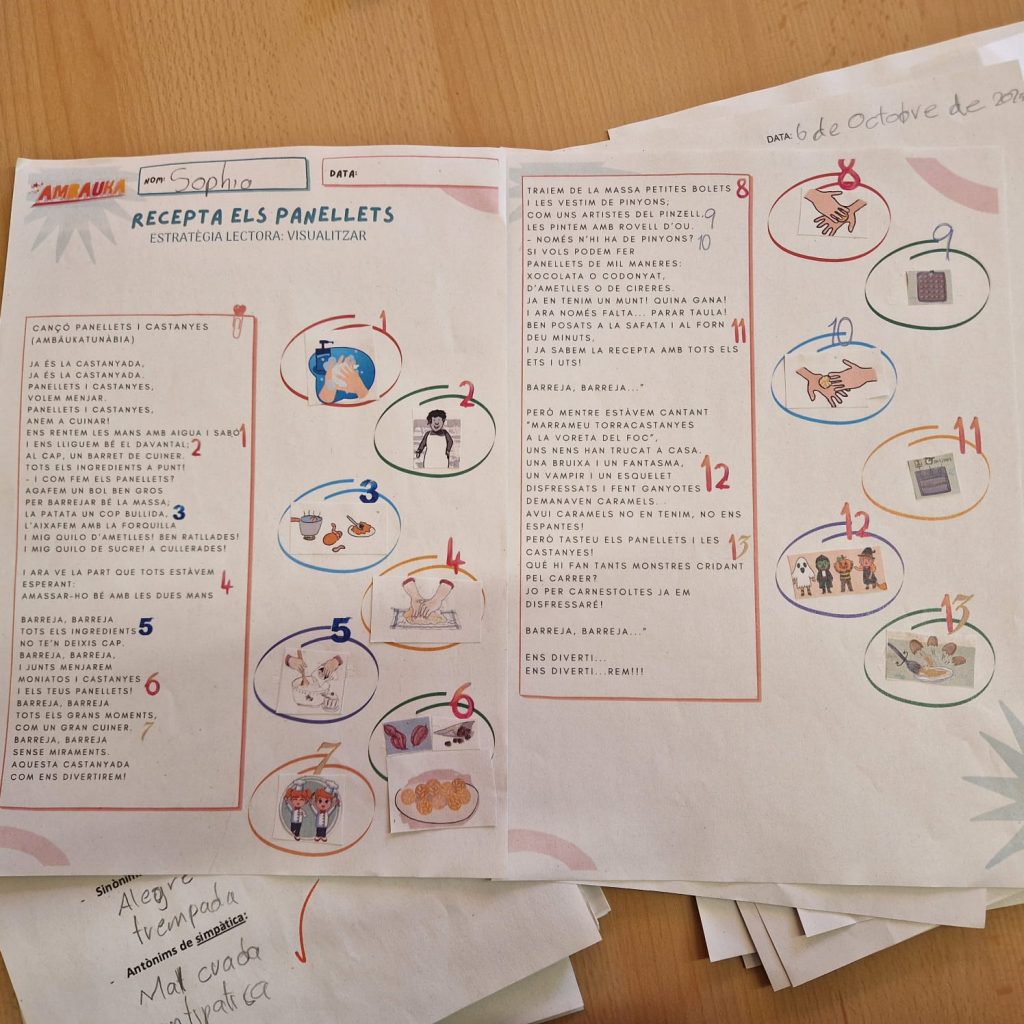 DATA: 6 de Octobre de
AMBAUKA
NOM: Sophia
DATA:
RECEPTA ELS PANELLETS
ESTRATÈGIA LECTORA: VISUALITZAR
CANÇÓ PANELLETS I CASTANYES
(AMBÄUKATUNÀBIA)
JA ÉS LA CASTANYADA,
JA ÉS LA CASTANYADA.
PANELLETS I CASTANYES,
VOLEM MENJAR.
PANELLETS I CASTANYES,
ANEM A CUINAR!
ENS RENTEM LES MANS AMB AIGUA I SABÓ 1
I ENS LLIGUEM BÉ EL DAVANTAL; 2
AL CAP, UN BARRET DE CUINER.
TOTS ELS INGREDIENTS A PUNT!
- I COM FEM ELS PANELLETS?
AGAFEM UN BOL BEN GROS
PER BARREJAR BÉ LA MASSA;
LA PATATA UN COP BULLIDA, 3
L'AIXAFEM AMB LA FORQUILLA
I MIG QUILO D'AMETLLES! BEN RATLLADES!
I MIG QUILO DE SUCRE! A CULLERADES!
I ARA VE LA PART QUE TOTS ESTÀVEM
ESPERANT: 4
AMASSAR-HO BÉ AMB LES DUES MANS
BARREJA, BARREJA
TOTS ELS INGREDIENTS 5
NO TE'N DEIXIS CAP.
BARREJA, BARREJA,
I JUNTS MENJAREM
MONIATOS I CASTANYES
I ELS TEUS PANELLETS! 6
BARREJA, BARREJA
TOTS ELS GRANS MOMENTS,
COM UN GRAN CUINER. 7
BARREJA, BARREJA
SENSE MIRAMENTS.
AQUESTA CASTANYADA
COM ENS DIVERTIREM!
1
2
3
4
5
6
7
TRAIEM DE LA MASSA PETITES BOLETS 8
I LES VESTIM DE PINYONS;
COM UNS ARTISTES DEL PINZELL, 9
LES PINTEM AMB ROVELL D'OU.
- NOMÉS N'HI HA DE PINYONS? 10
SI VOLS PODEM FER
PANELLETS DE MIL MANERES:
XOCOLATA O CODONYAT,
D'AMETLLES O DE CIRERES.
JA EN TENIM UN MUNT! QUINA GANA!
I ARA NOMÉS FALTA... PARAR TAULA!
BEN POSATS A LA SAFATA I AL FORN 11
DEU MINUTS,
I JA SABEM LA RECEPTA AMB TOTS ELS
ETS I UTS!
BARREJA, BARREJA..."
PERÒ MENTRE ESTÀVEM CANTANT
"MARRAMEU TORRACASTANYES
A LA VORETA DEL FOC",
UNS NENS HAN TRUCAT A CASA.
UNA BRUIXA I UN FANTASMA,
UN VAMPIR I UN ESQUELET 12
DISFRESSATS I FENT GANYOTES
DEMANAVEN CARAMELS...
AVUI CARAMELS NO EN TENIM, NO ENS
ESPANTES!
PERÒ TASTEU ELS PANELLETS I LES 13
CASTANYES!
QUÈ HI FAN TANTS MONSTRES CRIDANT
PEL CARRER?
JO PER CARNESTOLTES JA EM
DISFRESSARÉ!
BARREJA, BARREJA..."
ENS DIVERTI...
ENS DIVERTI...REM!!!
8
9
10
11
12
13
Alegre
trempada
Antònims de simpàtica:
Mal cuada